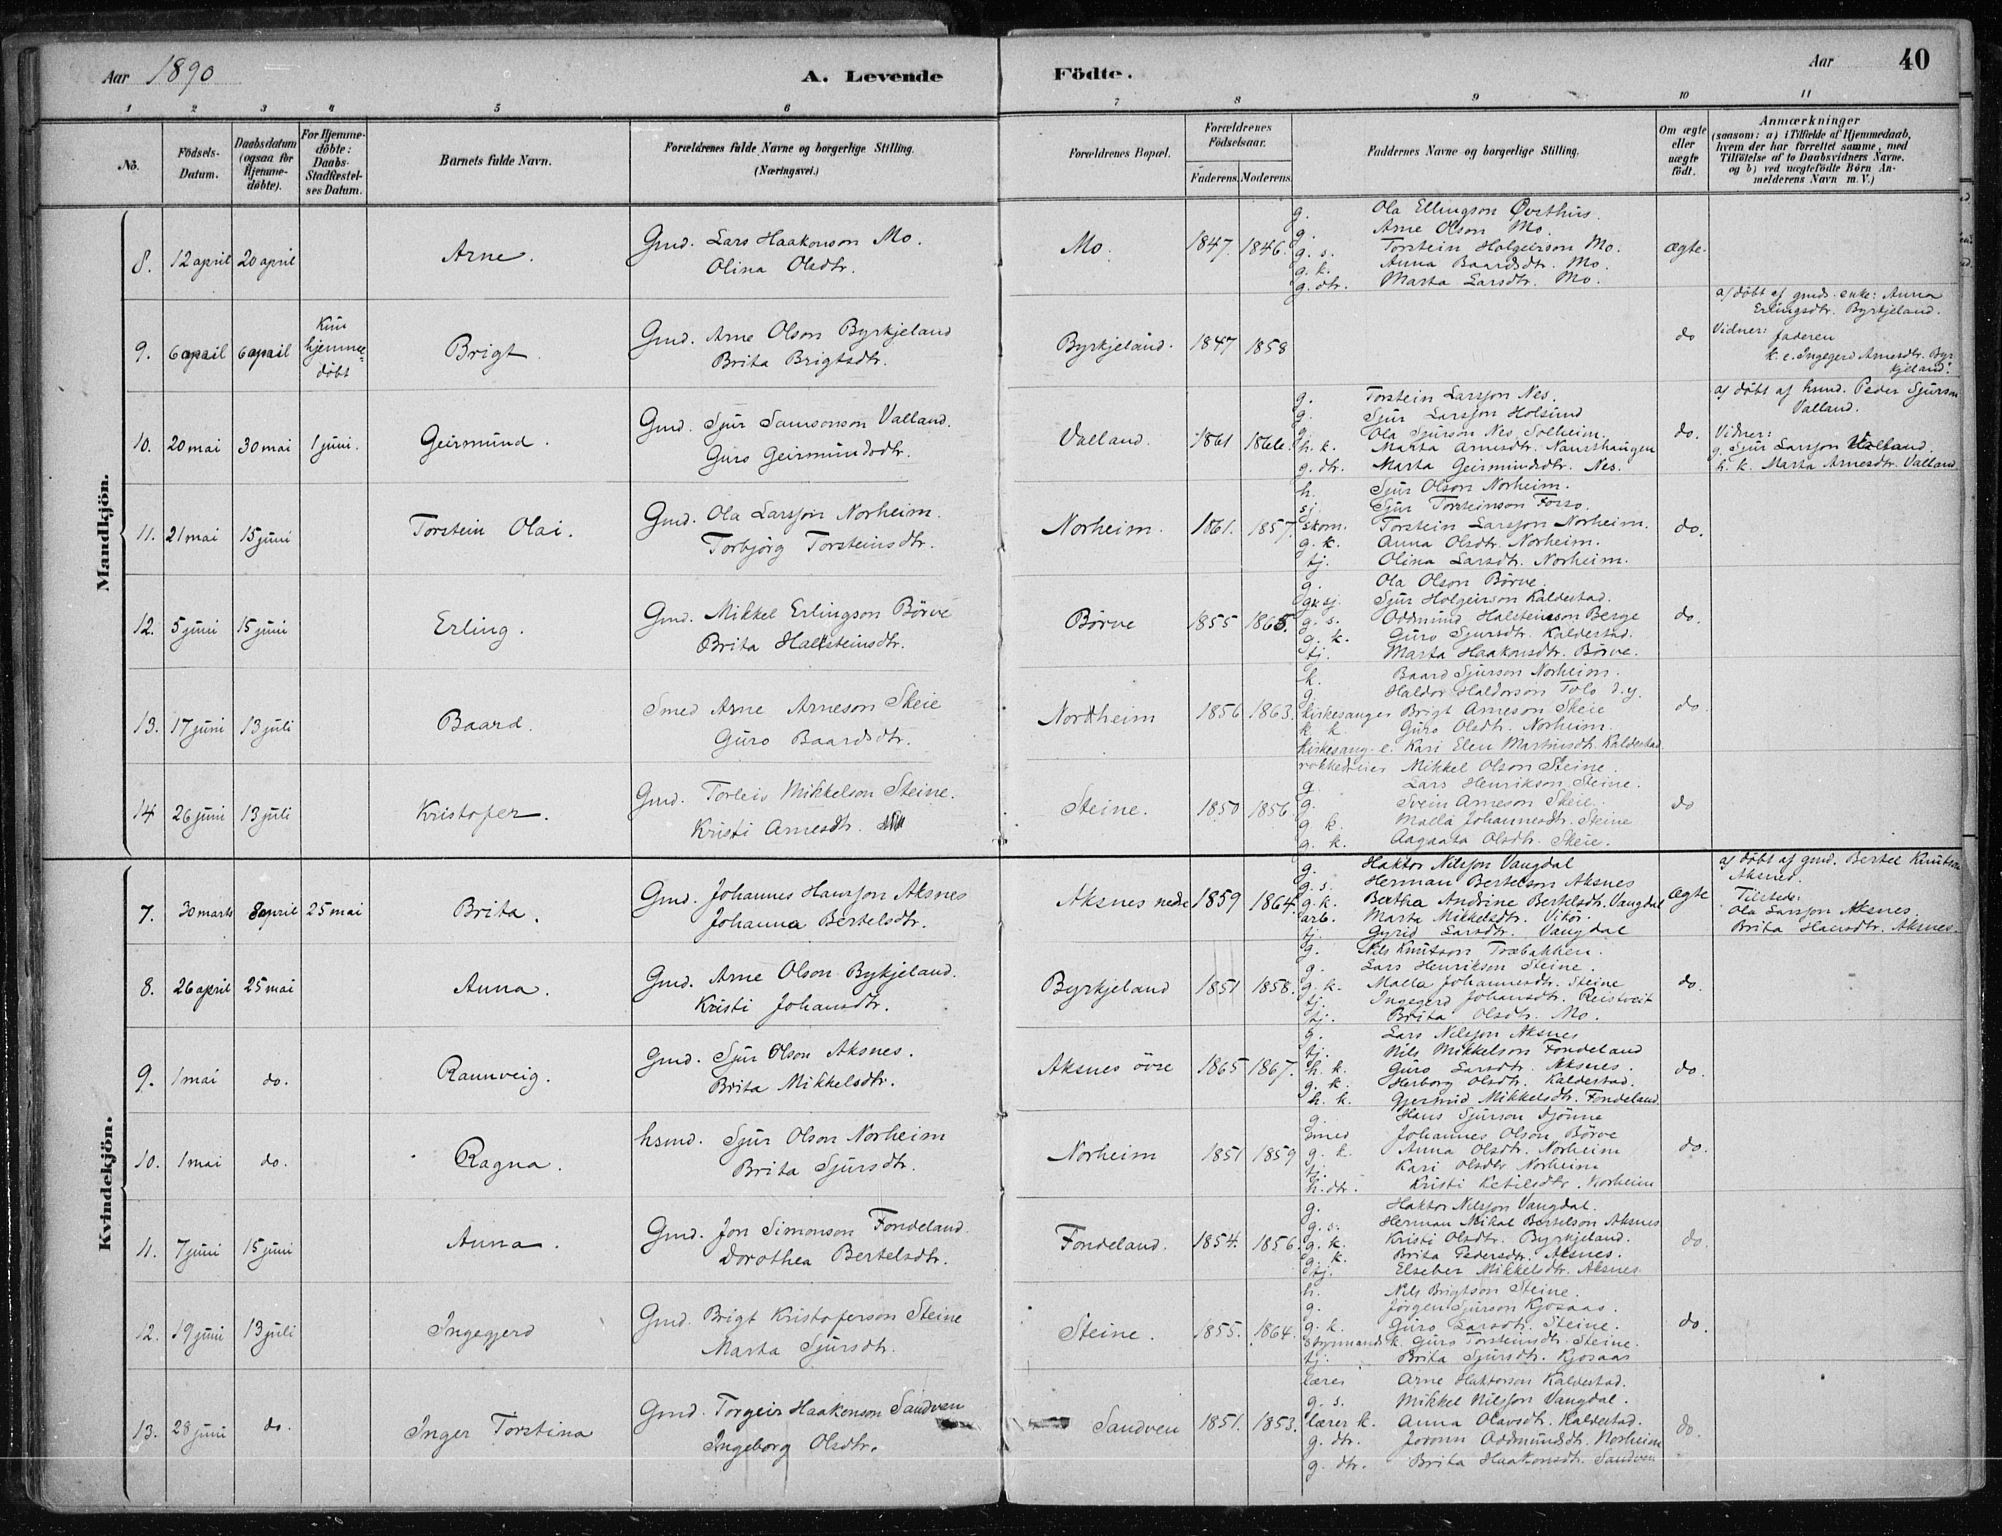 Aar 1890
A. Levende Födte.
Aar
40
1 2 3 4 5 6 7 8 9 10 11
No.
Födsels-Datum.
Daabsdatum (ogsaa for Hjemme-döbte).
For Hjemme-döbte: Daabs-Stadfæstel-ses Datum.
Barnets fulde Navn.
Forældrenes fulde Navne og borgerlige Stilling. (Næringsvei.)
Forældrenes Bopæl.
Forældrenes Födselsaar.
Faderens. Moderens.
Faddernes Navne og borgerlige Stilling.
Om ægte eller uægte födt.
Anmærkninger
(saasom: a) i Tilfælde af Hjemmedaab,
hvem der har forrettet samme, med
Tilföielse af to Daabsvidners Navne.
og b) ved uægtefödte Börn An-
melderens Navn m. V.)
Mandkjön.
8. 12 april 20 april Arne. Gmd. Lars Haakonson Mo.
Olina Olsdtr.
Mo. 1847. 1846. ægte.
g. Ola Ellingson Øvsthus.
g. Arne Olson Mo.
g. s. Torstein Holgeirson Mo.
g. k. Anna Baardsdtr. Mo.
g. dtr. Marta Larsdtr. Mo.
9. 6 april 6 april Kun hjemme-döbt Brigt. Gmd. Arne Olson Byrkjeland
Brita Brigtsdtr.
Byrkjeland. 1847 1858 do
a) döbt af gmds. enke: Anna
Erlingsdtr. Byrkjeland.
Vidner: faderen
k. e. Ingegerd Arnesdtr. Byr-
kjeland.
10. 20 mai 30 mai 1 juni. Geirmund. Gmd. Sjur Samsonson Valland.
Guro Geirmundsdtr.
Valland. 1861 1866. do.
g. Torstein Larsson Nes.
g. Sjur Larsson Holsund
g. Ola Sjurson Nes, Solheim.
h. k. Marta Arnesdtr. Nausthaugen
g. dtr. Marta Geirmundsdtr. Nes.
a) döbt af hsmd. Peder Sjurson
Valland.
Vidner:
g. Sjur Larsson Valland.
h. k. Marta Arnesdtr. Valland.
11. 21 mai 15 juni Torstein Olai. Gmd. Ola Larsson Norheim.
Torbjörg Torsteinsdtr.
Norheim. 1861. 1857. do.
h. Sjur Olson Norheim.
sj. Sjur Torsteinson Fosso.
skom. Torstein Larsson Norheim.
g. k. Anna Olsdtr. Norheim.
tj. Olina Larsdtr. Norheim.
12. 5 juni 15 juni Erling. Gmd. Mikkel Erlingson Börve
Brita Halsteinsdtr.
Börve 1855 1865. do.
g. Ola Olson Börve.
sj. Sjur Holgeirson Kaldestad.
g. s. Oddmund Halsteinson Berge
g. k. Guro Sjursdtr. Kaldestad.
tj. Marta Haakonsdtr. Börve.
13. 17 juni 13 juli Baard. Smed Arne Arneson Skeie
Guro Baardsdtr.
Nordheim 1856. 1863. do.
k. Baard Sjurson Norheim.
g. Haldor Haldorson Tolo d.y.
kirkesanger Brigt Arneson Skeie
k. k. Guro Olsdtr. Norheim.
kirkesang. e. Kari Elen Martinsdtr. Kaldestad
14 26 juni 13 juli Kristofer. Gmd. Torleiv Mikkelson Steine.
Kristi Arnesdtr.
Steine. 1850 1856 do
rokkedreier Mikkel Olson Steine.
g. Lars Henrikson Steine.
g. Svein Arneson Skeie.
g. k. Maela Johannesdtr. Steine
g. k. Aagaata Olsdtr. Skeie.
Kvindekjön.
7. 30 marts 8 april 25 mai Brita. Gmd. Johannes Hansson Aksnes
Johanna Bertelsdtr.
Aksnes nedre 1859 1864. ægte
g. Haktor Nilsson Vangdal
g. s. Herman Bertelson Aksnes
g. k. Bertha Andrine Bertelsdtr. Vangdal
arb. Marta Mikkelsdtr. Vikör.
tj. Gyrid Larsdtr. Vangdal
a) döbt af gmd. Bertel Knutson
Aksnes.
Tilsteds:
Ola Larsson Aksnes.
Brita Hansdtr. Aksnes.
8. 26 april 25 mai Anna. Gmd. Arne Olson Bykjeland.
Kristi Johansdtr.
Byrkjeland 1851 1858. do.
g. Nils Knutson Træbakken.
g. Lars Henrikson Steine.
g. k. Maela Johannesdtr. Steine
tj. Ingegerd Johansdtr. Reistveit
tj. Brita Olsdtr. Mo.
9. 1 mai do. Raunveig. Gmd. Sjur Olson Aksnes.
Brita Mikkelsdtr.
Aksnes övre 1865 1867. do.
g. Lars Nilsson Aksnes
tj. Nils Mikkelson Fondeland
h. k. Guro Larsdtr. Aksnes.
g. k. Herborg Olsdtr. Kaldestad.
h. k. Gjertrud Mikkelsdtr. Fondeland.
10. 1 mai do. Ragna. hsmd. Sjur Olson Norheim
Brita Sjursdtr.
Norheim 1851 1859 do.
g. Hans Sjurson Djönne
smed Johannes Olson Börve
g. k. Anna Olsdtr. Norheim
tj. Kari Olsdtr Norheim
h. dtr. Kristi Ketilsdtr. Norheim
11. 7 juni 15 juni Anna. Gmd. Jon Simonson Fondeland.
Dorothea Bertelsdtr.
Fondeland. 1854. 1856. do.
g. Haktor Nilsson Vangdal.
g. s. Herman Mikal Bertelson Aksnes
g. k. Kristi Olsdtr. Byrkjeland.
g. k. Brita Pedersdtr. Aksnes.
tj. Elseber Mikkelsdtr. Aksnes
12. 19 juni 13 juli Ingegjerd Gmd. Brigt Kristoferson Steine
Marta Sjursdtr.
Steine. 1855. 1864. do.
h. Nils Brigtson Steine.
g. Jörgen Sjurson Kjosaas.
g. k. Guro Larsdtr. Steine.
Styrmands k. Guro Torsteinsdtr. Steine.
tj. Brita Sjursdtr. Kjosaas
13. 28 juni do. Inger Torstina Gmd. Torgeir Haakonson Sandven
Ingeborg Olsdtr.
Sandven 1851. 1853. do.
lærer Arne Haktorson Kaldestad.
g. s. Mikkel Nilsson Vangdal.
lærer k. Anna Olavsdtr. Kaldestad.
g. dtr. Joronn Oddmundsdtr. Norheim
g. dtr. Brita Haakonsdtr. Sandven